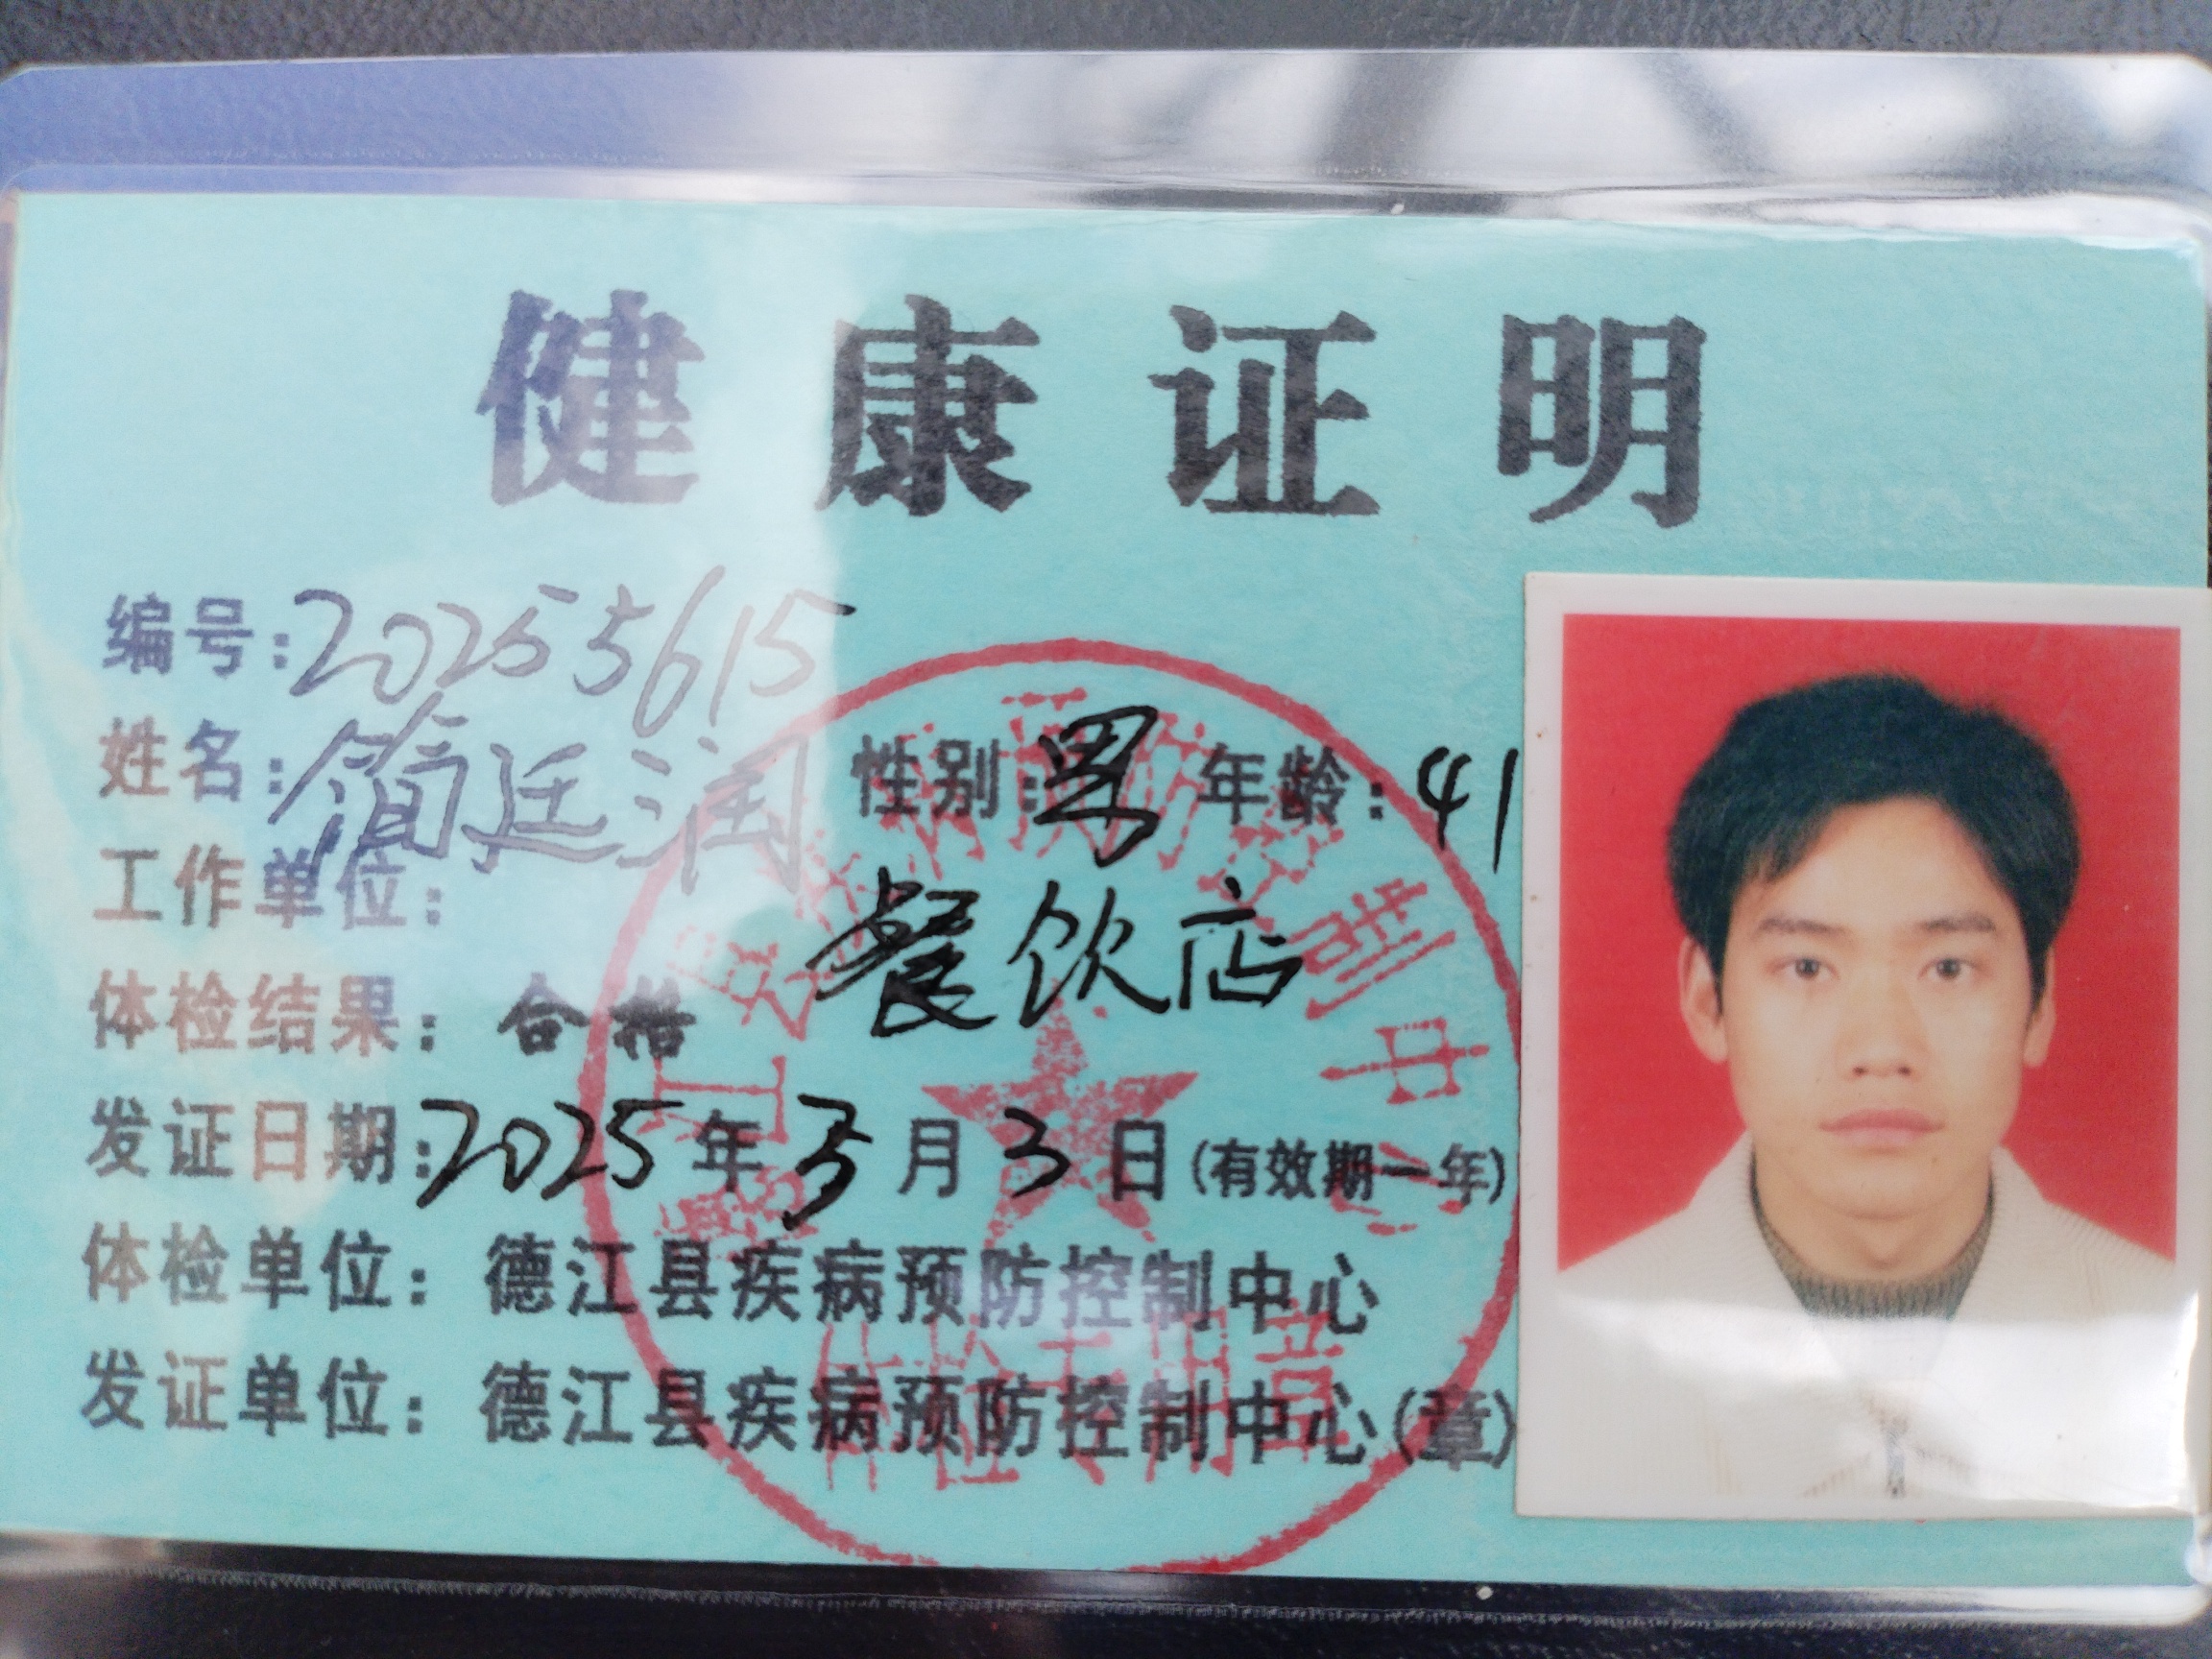 健康证明
编号:20255615
姓名:简廷润 性别:男 年龄:41
工作单位: 餐饮店
体检结果: 合格
发证日期:2025年3月3日(有效期一年)
体检单位: 德江县疾病预防控制中心
发证单位: 德江县疾病预防控制中心(章)
德江县疾病预防控制中心
体检专用章